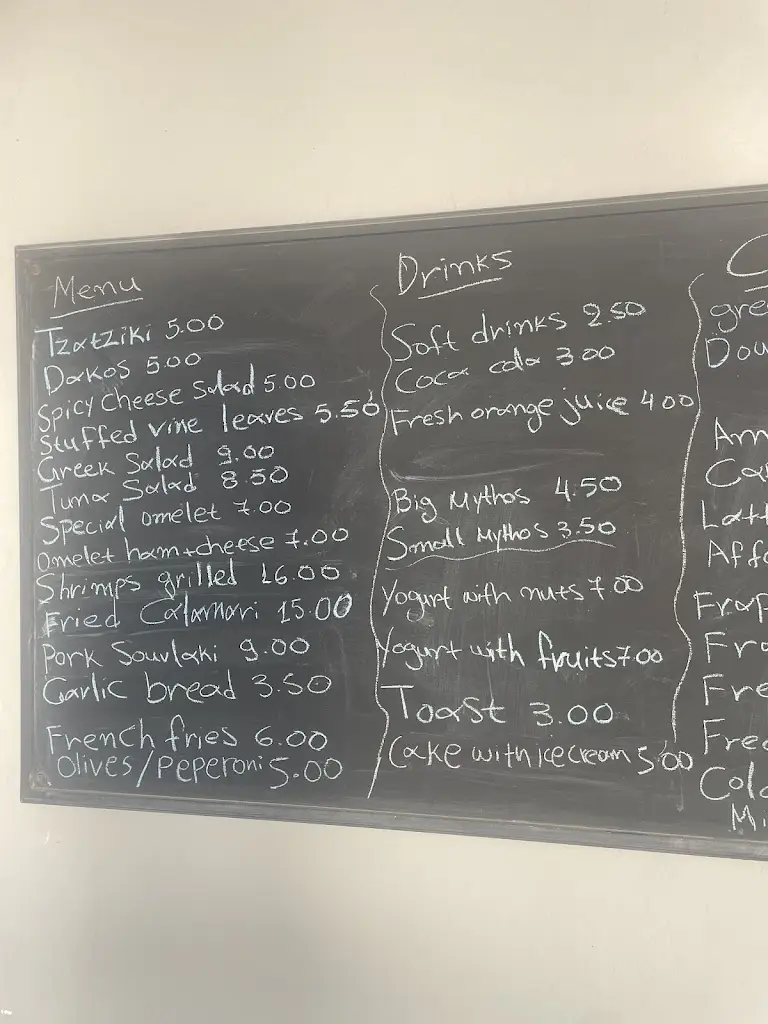 Menu
Tzatziki 5.00
Dakos 5.00
Spicy cheese salad 5.00
Stuffed vine leaves 5.50
Greek Salad 9.00
Tuna Salad 8.50
Special omelet 7.00
Omelet ham+cheese 7.00
Shrimps grilled 16.00
Fried Calamari 15.00
Pork Souvlaki 9.00
Garlic bread 3.50
French fries 6.00
Olives/Peperoni 5.00
Drinks
Soft drinks 2.50
Coca cola 3.00
Fresh orange juice 4.00
Big Mythos 4.50
Small Mythos 3.50
Yogurt with nuts 7.00
Yogurt with fruits 7.00
Toast 3.00
Cake with ice cream 5.00
C
gre
Dou
Am
Ca
Latt
Affo
Frap
Fra
Fre
Fred
Colo
Mi